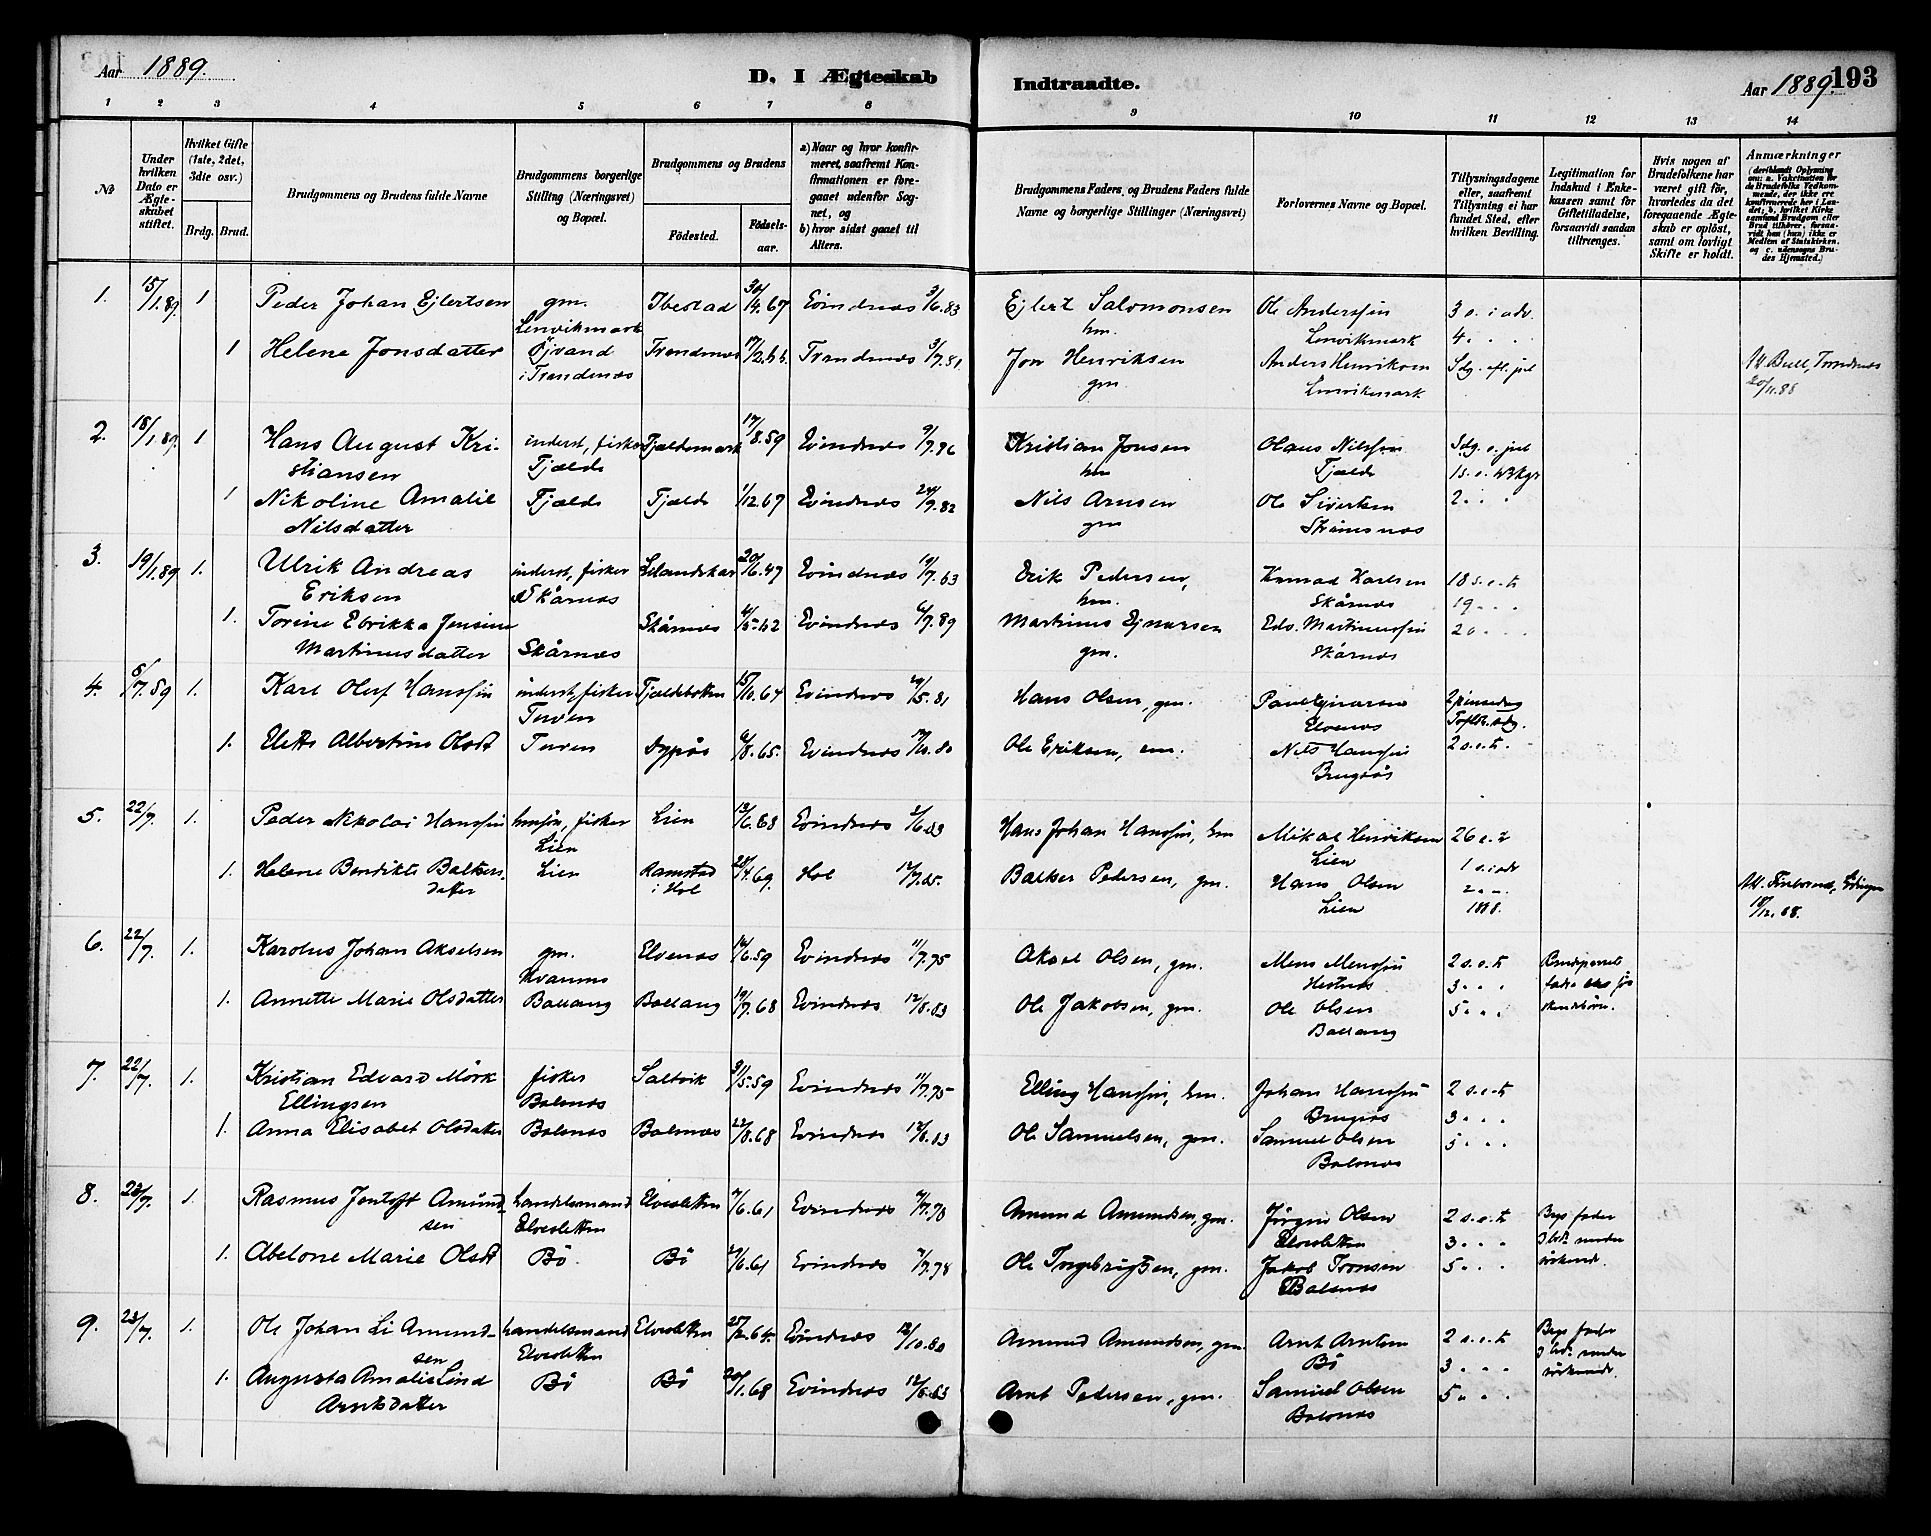 Aar 1889.
D. I Ægteskab Indtraadte.
Aar 1889. 193
1 2 3 4 5 6 7 8 9 10 11 12 13 14
No
Under hvilken Dato er Ægteskabet stiftet.
Hvilket Gifte (1ste, 2det, 3die osv.)
Brdg. Brud.
Brudgommens og Brudens fulde Navne
Brudgommens borgerlige Stilling (Næringsvei) og Bopæl.
Brudgommens og Brudens
Födested.
Födselsaar.
a) Naar og hvor konfirmeret, saafremt Konfirmationen er foregaaet udenfor Sognet, og
b) hvor sidst gaaet til Alters.
Brudgommens Faders, og Brudens Faders fulde Navne og borgerlige Stillinger (Næringsvei)
Forlovernes Navne og Bopæl.
Tillysningsdagene eller, saafremt Tillysning ei har fundet Sted, efter hvilken Bevilling.
Legitimation for Indskud i Enkekassen samt for Giftetilladelse, forsaavidt saadan tiltrænges.
Hvis nogen af Brudefolkene har været gift för, hvorledes da det foregaaende Ægteskab er oplöst, samt om lovligt Skifte er holdt.
Anmærkninger (deriblandt Oplysning om: a. Vakcination for de Brudefolks Vedkommende, der ikke ere konfirmerede her i Landet; b. hvilket Kirkesamfund Brudgom eller Brud tilhörer, forsaavidt han (hun) ikke er Medlem af Statskirken, og c. udensogns Brudes Hjemsted.)
1. 15/1.89. 1 Peder Johan Ejlertsen gm. Lenvikmark Ibestad 30/4.67 Evindnæs 3/6.83 Ejlert Salomonsen hm. Ole Anderssen Lenvikmark 3 s. i adv. 4 . . .
1 Helene Jonsdatter Öjvand i Trandenæs Trondenæs 17/2.64. Trandnæs 3/7.81 Jon Henriksen gm. Anders Henriksen Lenvikmark Sdg. eft. jul Att. Bull, Trondnæs 20/11.88
2. 18/1.89. 1 Hans August Kristiansen inderst, fisker Fjælde Fjældsmark 17/8.59 Evindnæs 9/7.76 Kristian Jonsen hm Olaus Nilssen Fjælde Sdg. e. jul 1 s. e. H3kgr
1 Nikoline Amalie Nilsdatter Fjælde Fjælde 1/12.67 Evindnæs 24/9.82 Nils Arnsen gm Ole Sivertsen 2 . .
3. 19/1.89 1. Ulrik Andreas Eriksen inderst, fisker Skårnæs 20/6.47 Evindnæs 19/7.63 Erik Pedersen, hm. Konrad Karlsen Skårnæs 18 s. e. tr 19 . . .
1. Torine Ebrikka Jensine Martinusdatter Skårnæs Skårnæs 4/5.62 Evindnæs Martinus Ejnarsen gm. Edv. Martinussen Skårnæs 20 . . .
4. 5/7.89 1. Karl Oluf Hanssen inderst, fisker Fjældebotten 15/10.64 Evindnæs 29/5.81 Hans Olsen, gm. Elvenæs 2 pinsedag
1. Elette Albertine Olsdt 6/8.65. Evindnæs Ole Eriksen, em. Nils Hanssen 2 s. e. tr.
5. 22/7. 1. Peder Nikolai Hanssen hmsön, fisker Lien Lien 13/6.68 Evindnæs 3/6.83 Hans Johan Hanssen, hm Mikal Henriksen Lien 26 e. tr
1. Helene Bendikte Baltkersdatter Lien Ramstad i Hol 28/4.69. Hol 12/7.85. Balker Pedersen, gm. Hans Olsen Lien 1 s. i adv 2 . . 1888. 18/12.88.
6. 22/7. 1. Karolus Johan Akselsen gm. Kvanns Elvenæs 14/6.59 Evindnæs 11/7.75 Aksel Olsen, gm. Mons Monssen Hestnæs 2 s. e. tr 3 . . .
1. Annette Marie Olsdatter Ballang Ballang 19/7.68 Evindnæs 12/8.83 Ole Jakobsen, gm. Ole Olsen Ballang 5 . . .
7. 22/7. 1. Kristian Edvard Mörk Ellingsen fisker Balsnæs Saltvik 9/5.59 Evindnæs 11/7.75 Elling Hanssen, hm. Johan Hanssen 2 s. e. tr 3 . . .
1. Anna Elisabet Olsdatter Balsnæs Balsnæs 22/8.68 Evindnæs 12/8.83 Ole Samuelsen, gm. Samuel Olsen Balsnæs 5 . . .
8. 23/7. 1. Rasmus Jentoft Amundsen handelsmand Elvesletten Elvesletten 7/6.61 Evindnæs 7/7.78 Amund Amundsen, gm. Jörgen Olsen Elvesletten 2 s. e. tr 3 . . .
1. Abelone Marie Olsdt Bö. Bö 29/6.61 Evindnæs 7/7.78 Ole Torgebrigtsen, gm. Jakob Tronsen Balsnæs 5 . . .
9. 23/7. 1. Ole Johan Li Amundsen handelsmand Elvesletten Elvesletten 25/2.64. Evindnæs 18/10.80 Amund Amundsen, gm. Arnt Arntsen Bö 2 s. e. tr 3 . . .
1. Augusta Amalie Lind Arntsdatter Bö Bö 20/1.68 Evindnæs 12/8.83 Arnt Pedersen, gm. Samuel Olsen Balsnæs 5 . . .